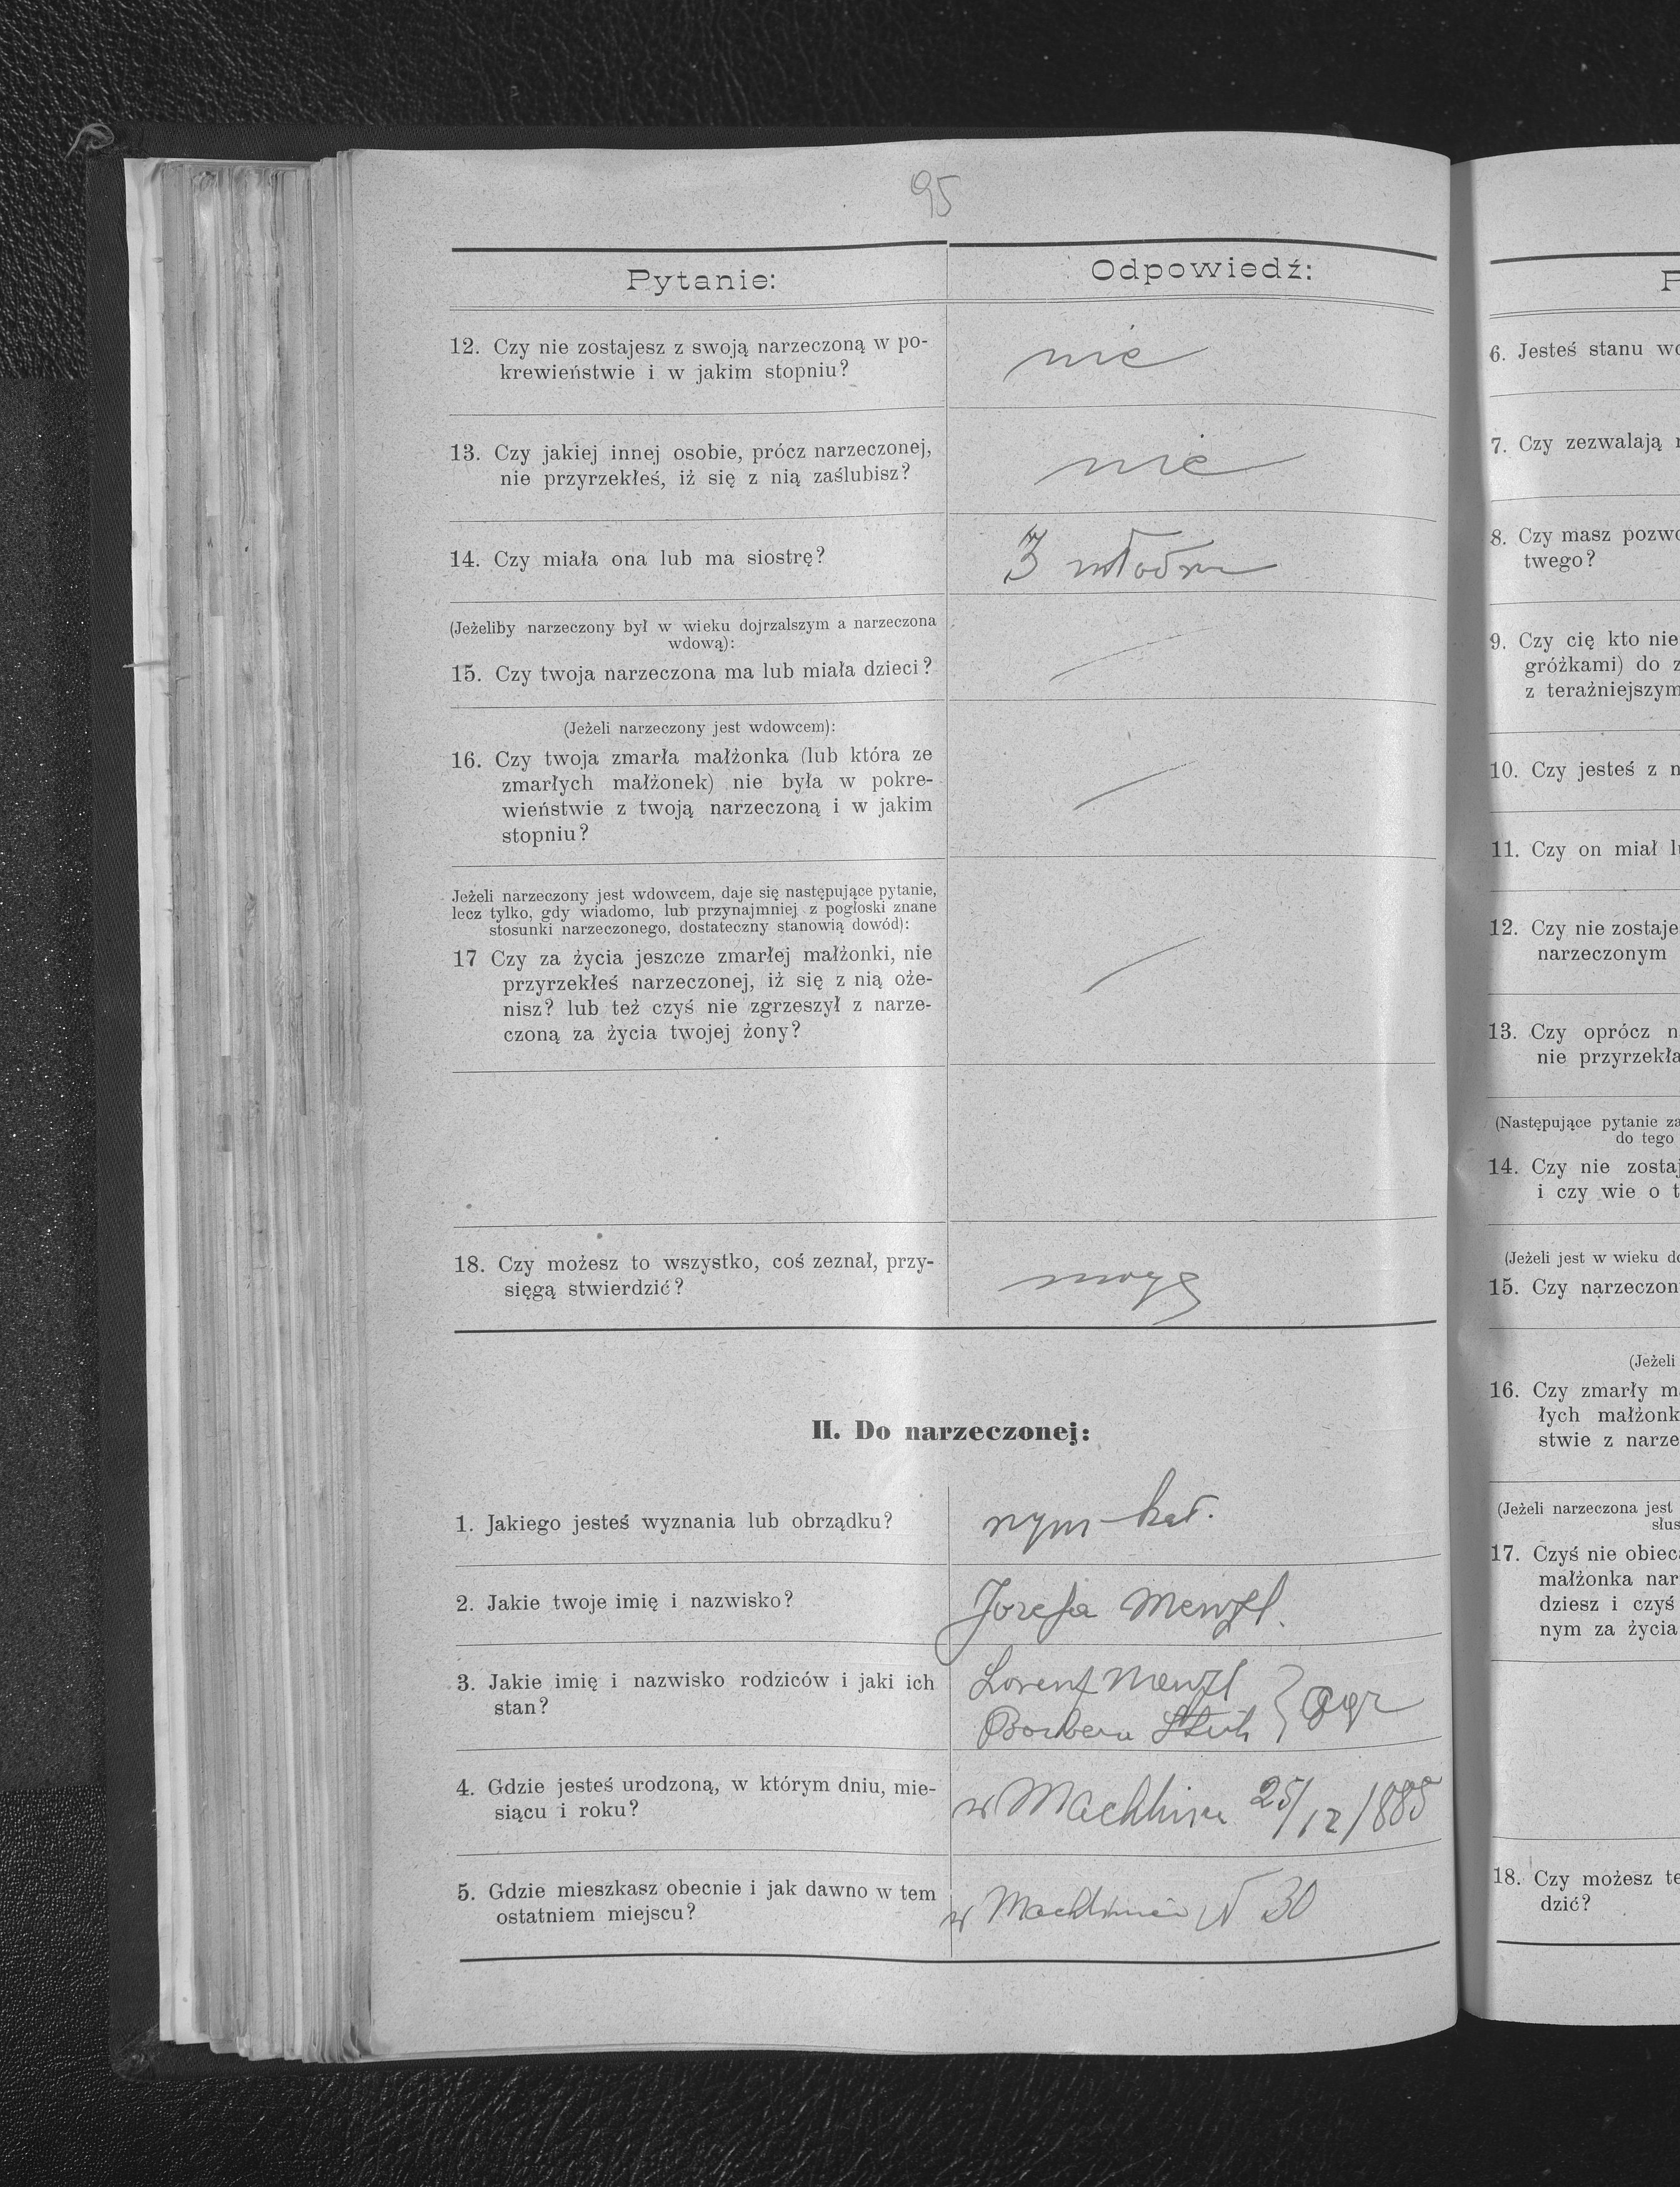 95
Pytanie:
Odpowiedź:
12. Czy nie zostajesz z swoją narzeczoną w po-
krewieństwie i w jakim stopniu?
nie
13. Czy jakiej innej osobie, prócz narzeczonej,
nie przyrzekłeś, iż się z nią zaślubisz?
nie
14. Czy miała ona lub ma siostrę?
3
(Jeżeliby narzeczony był w wieku dojrzalszym a narzeczona
wdową):
15. Czy twoja narzeczona ma lub miała dzieci?
(Jeżeli narzeczony jest wdowcem):
16. Czy twoja zmarła małżonka (lub która ze
zmarłych małżonek) nie była w pokre-
wieństwie z twoją narzeczoną i w jakim
stopniu?
Jeżeli narzeczony jest wdowcem, daje się następujące pytanie,
lecz tylko, gdy wiadomo, lub przynajmniej z pogłoski znane
stosunki narzeczonego, dostateczny stanowią dowód):
17 Czy za życia jeszcze zmarłej małżonki, nie
przyrzekłeś narzeczonej, iż się z nią oże-
nisz? lub też czyś nie zgrzeszył z narze-
czoną za życia twojej żony?
18. Czy możesz to wszystko, coś zeznał, przy-
sięgą stwierdzić?
mogę
II. Do narzeczonej:
1. Jakiego jesteś wyznania lub obrządku?
rzym-kat.
2. Jakie twoje imię i nazwisko?
Jozefa Menzl.
3. Jakie imię i nazwisko rodziców i jaki ich
stan?
Lorenz Menzl
Barbara
4. Gdzie jesteś urodzoną, w którym dniu, mie-
siącu i roku?
w Machliniec 25/12/1885
5. Gdzie mieszkasz obecnie i jak dawno w tem
ostatniem miejscu?
w Machliniec N 30
P
6. Jesteś stanu wo
7. Czy zezwalają
8. Czy masz pozwo
twego?
9. Czy cię kto nie
gróżkami) do z
z teraźniejszym
10. Czy jesteś z n
11. Czy on miał lu
12. Czy nie zostaje
narzeczonym
13. Czy oprócz na
nie przyrzekła
(Następujące pytanie za
do tego
14. Czy nie zostaj
i czy wie o t
(Jeżeli jest w wieku do
15. Czy narzeczon
(Jeżeli
16. Czy zmarły ma
łych małżonk
stwie z narze
(Jeżeli narzeczona jest
słus
17. Czyś nie obieca
małżonka nar
dziesz i czyś
nym za życia
18. Czy możesz te
dzić?